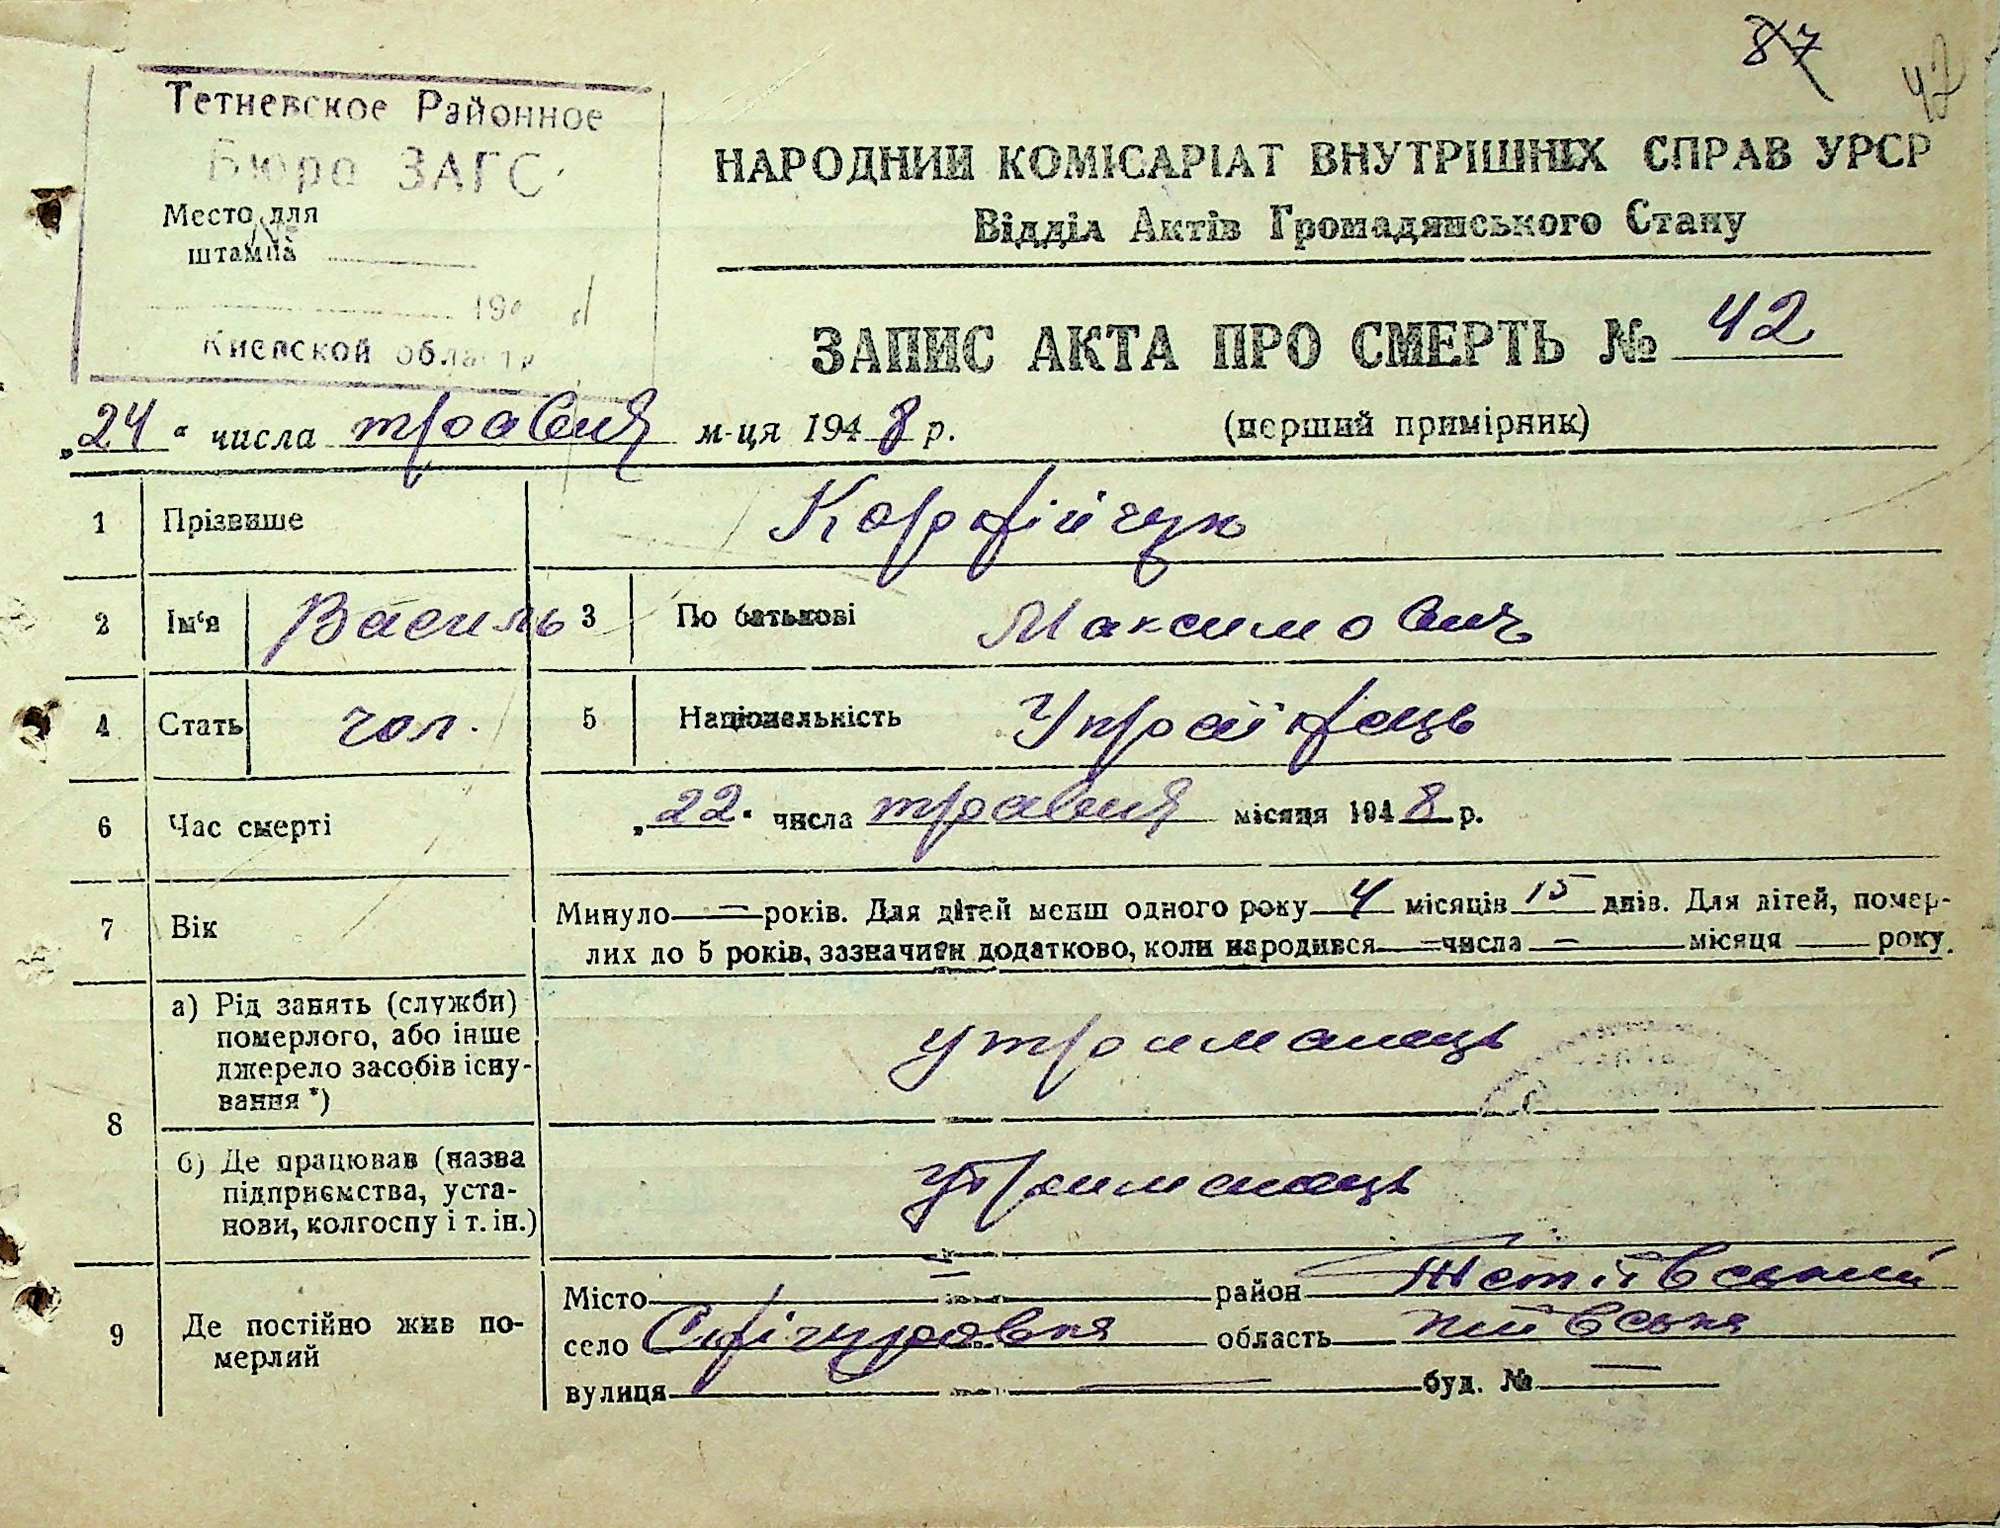 87
42
Тетневское Районное
Бюро ЗАГС
Место для
штампа
19
Киевской области
НАРОДНИЙ КОМІСАРІАТ ВНУТРІШНІХ СПРАВ УРСР
Відділ Актів Громадянського Стану
ЗАПИС АКТА ПРО СМЕРТЬ № 42
„24“ числа травня м-ця 1948 р. (перший примірник)
1 Прізвище Корнійчук
2 Ім‘я Василь 3 По батькові Максимович
4 Стать чол. 5 Національність Українець
6 Час смерті „22“ числа травня місяця 1948 р.
7 Вік Минуло — років. Для дітей менш одного року 4 місяців 15 днів. Для дітей, помер-
лих до 5 років, зазначити додатково, коли народився — числа — місяця — року.
8 а) Рід занять (служби)
померлого, або інше
джерело засобів існу-
вання *)
утриманець
б) Де працював (назва
підприємства, уста-
нови, колгоспу і т. ін.)
Утриманець
9 Де постійно жив по-
мерлий
Місто — район Тетіївський
село Снігурівка область Київська
вулиця — буд. № —